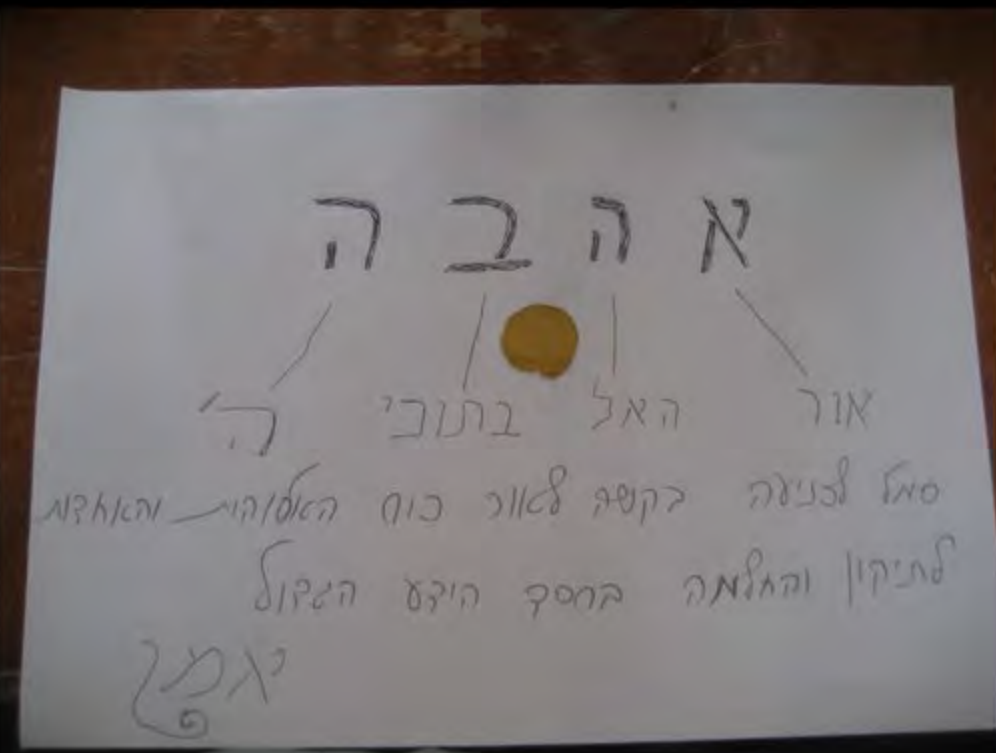 א ה ב ה
אור האל בתוכי ה'
סמל לכניעה בקשה לאור כוח האלוהות והאחדות
לתיקון והחלמה בחסד הידע הגדול